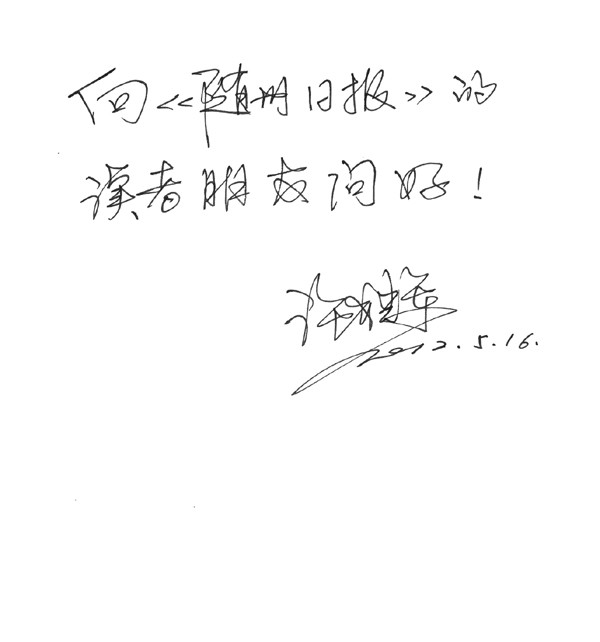 向《随州日报》的
读者朋友问好!
2012.5.16.